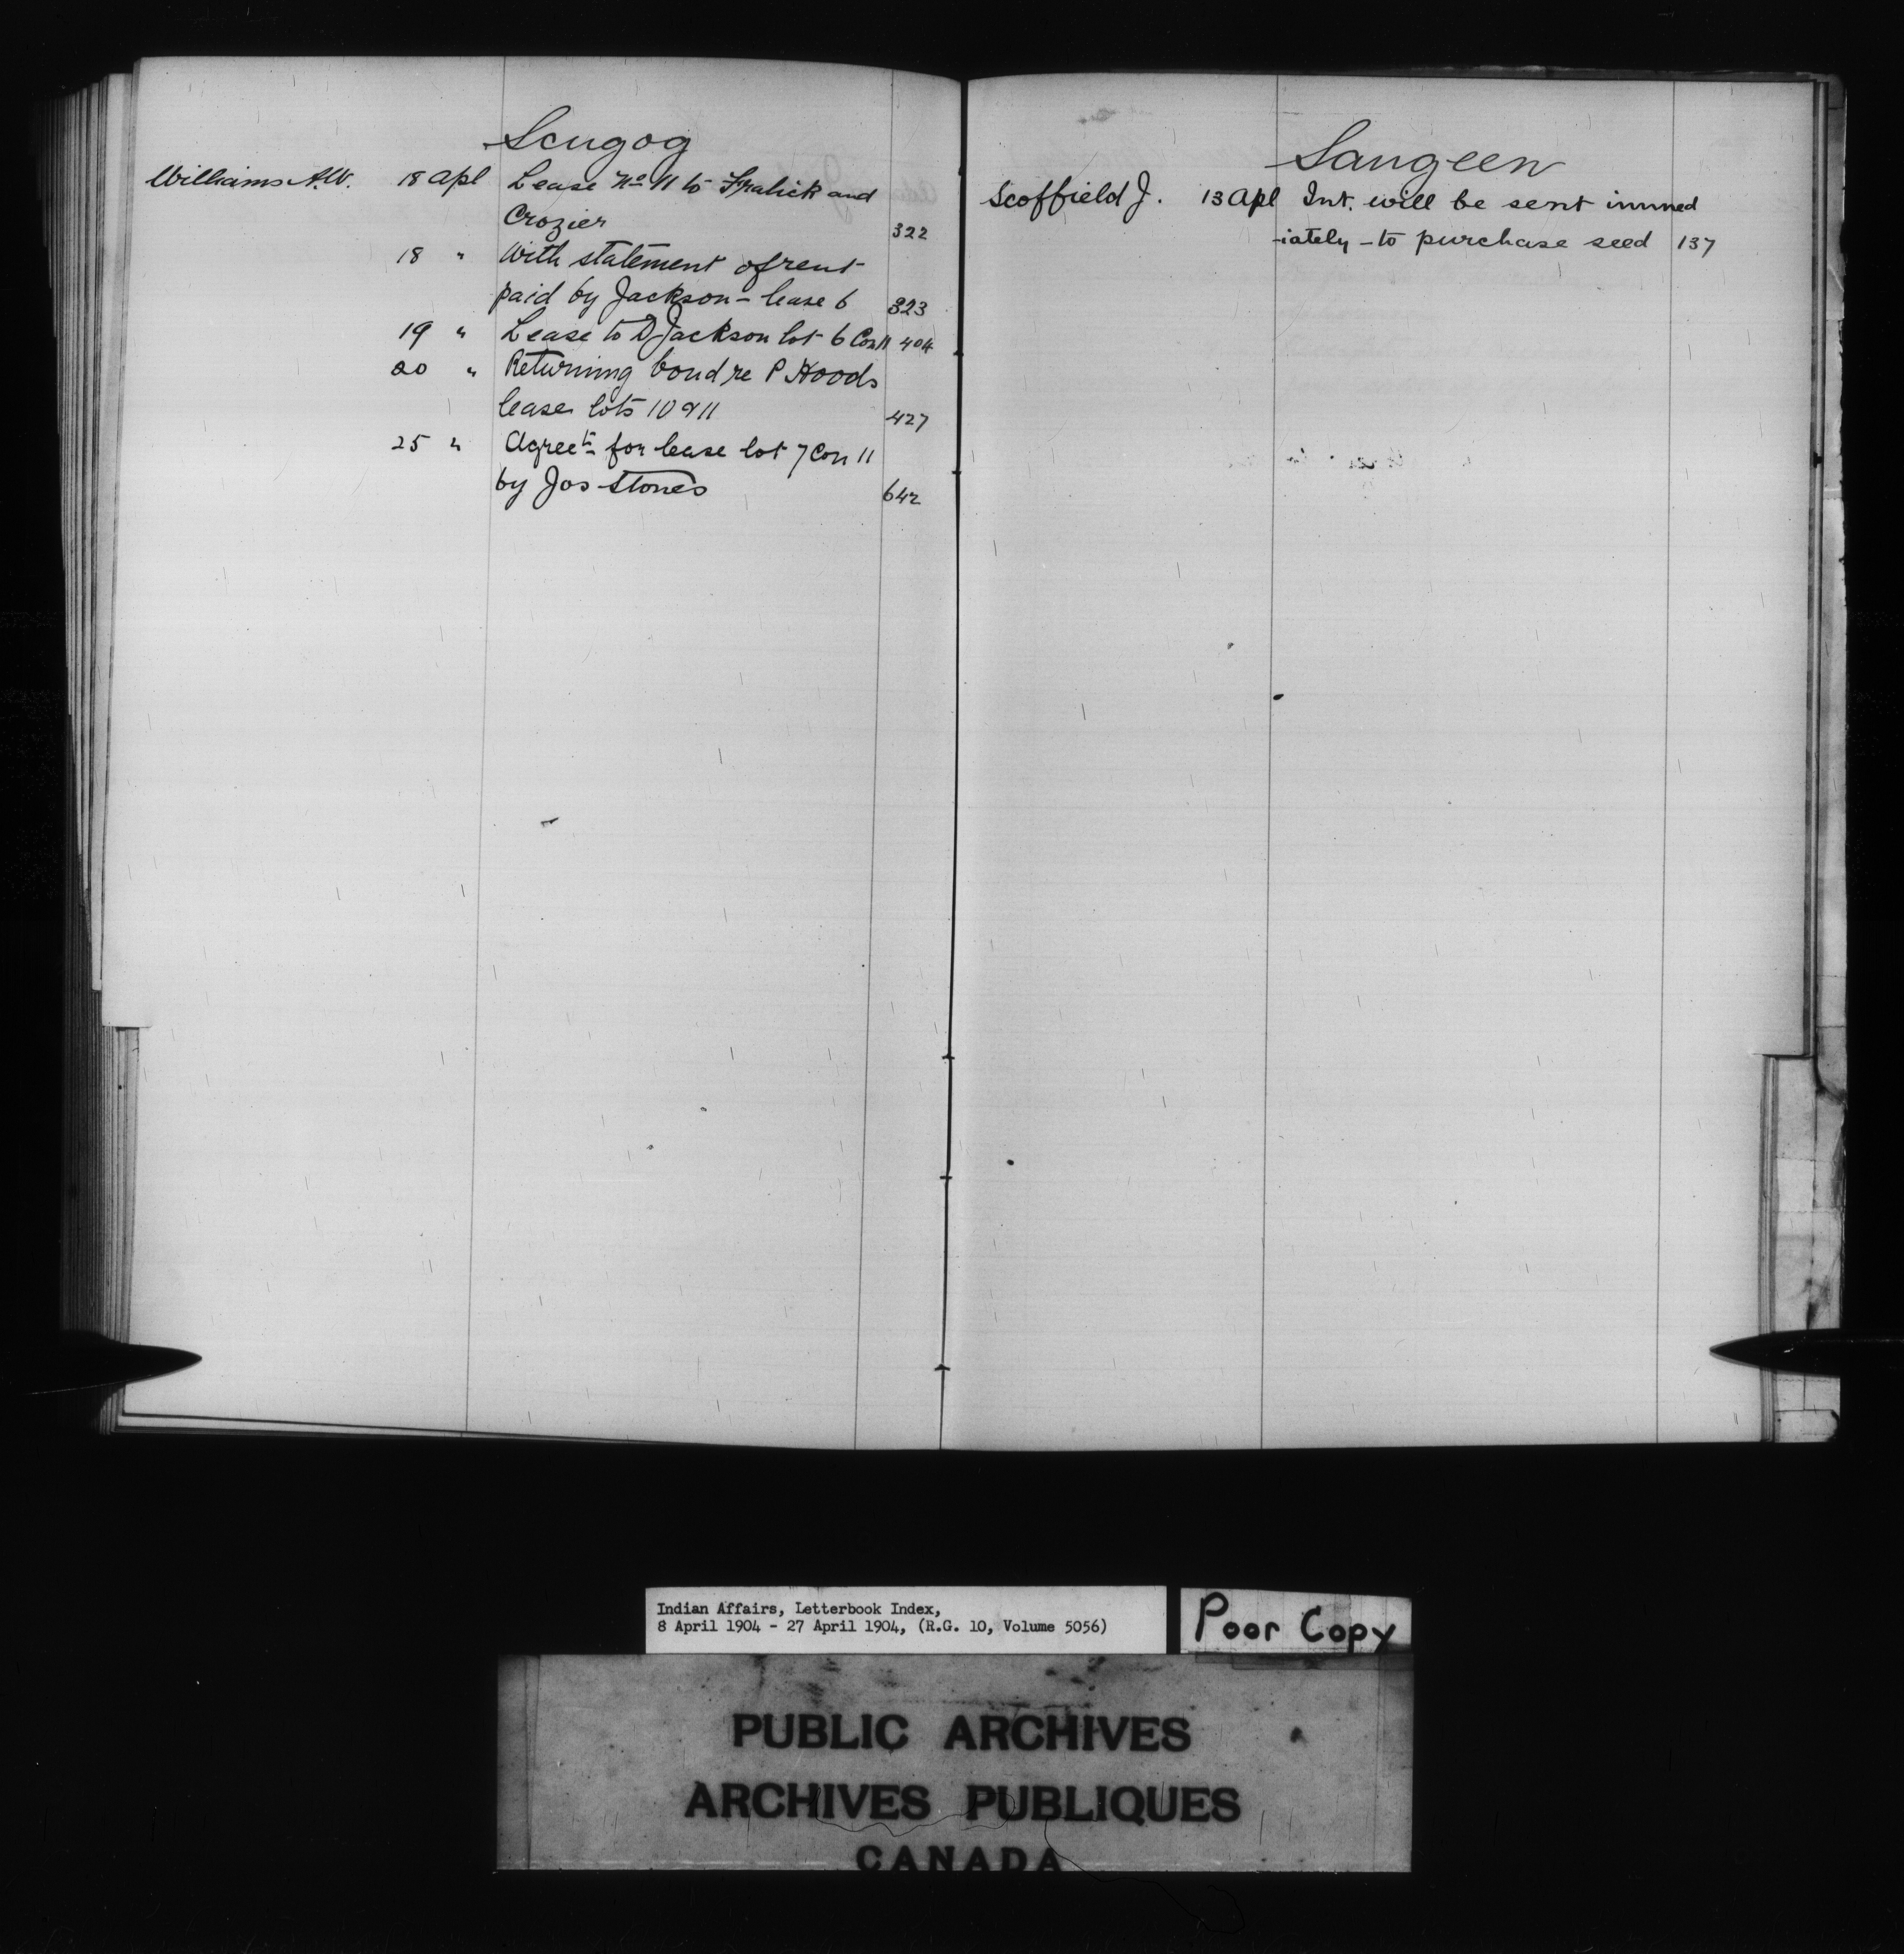 Scugog
Williams A.W. 18 Apl Lease No 11 to Fralick and
Crozier 322
18 " With statement of rent
paid by Jackson - lease 6 323
19 " Lease to D Jackson lot 6 Con 11 404
20 " Returning bond re P Hoods
lease lots 10 & 11 427
25 " Agreet for lease lot 7 Con 11
by Jos Stones 642
Saugeen
Scoffield J. 13 Apl Int. will be sent immed
-iately - to purchase seed 137
Indian Affairs, Letterbook Index,
8 April 1904 - 27 April 1904, (R.G. 10, Volume 5056)
Poor Copy
PUBLIC ARCHIVES
ARCHIVES PUBLIQUES
CANADA